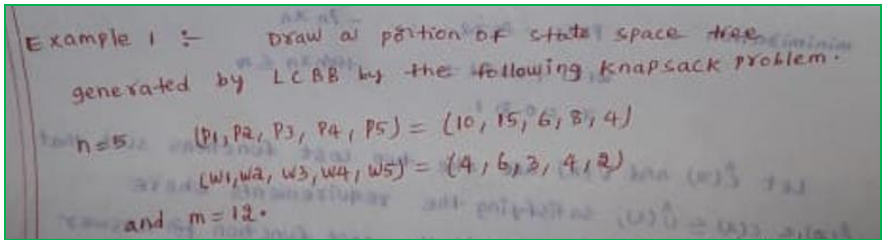 Example 1 :- Draw a portion of state space tree
generated by LCBB by the following knapsack problem.
n=5 (P1, P2, P3, P4, P5) = (10, 15, 6, 8, 4)
(w1, w2, w3, w4, w5) = (4, 6, 3, 4, 2)
and m=12.